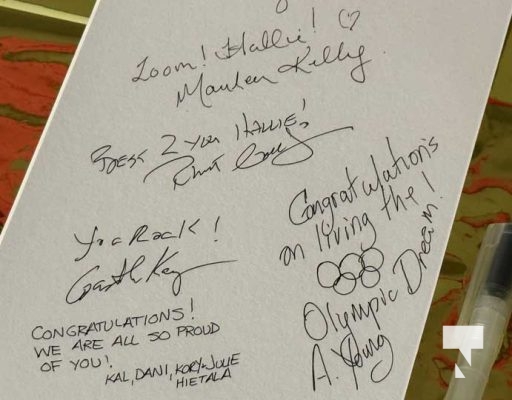 Zoom! Hallie! ♡
Maureen Kelly
BEST 2 You HALLIE!
You Rock!
Garth
CONGRATULATIONS!
WE ARE ALL SO PROUD
OF YOU!
KAL, DANI, KORY & JULIE
HIETALA
Congratulations
on living the!
Olympic Dream!
A. Young